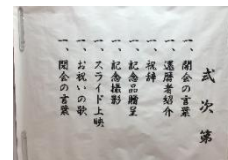 式次第
一、開会の言葉
一、還暦者紹介
一、祝辞
一、記念品贈呈
一、記念撮影
一、スライド上映
一、お祝いの歌
一、閉会の言葉